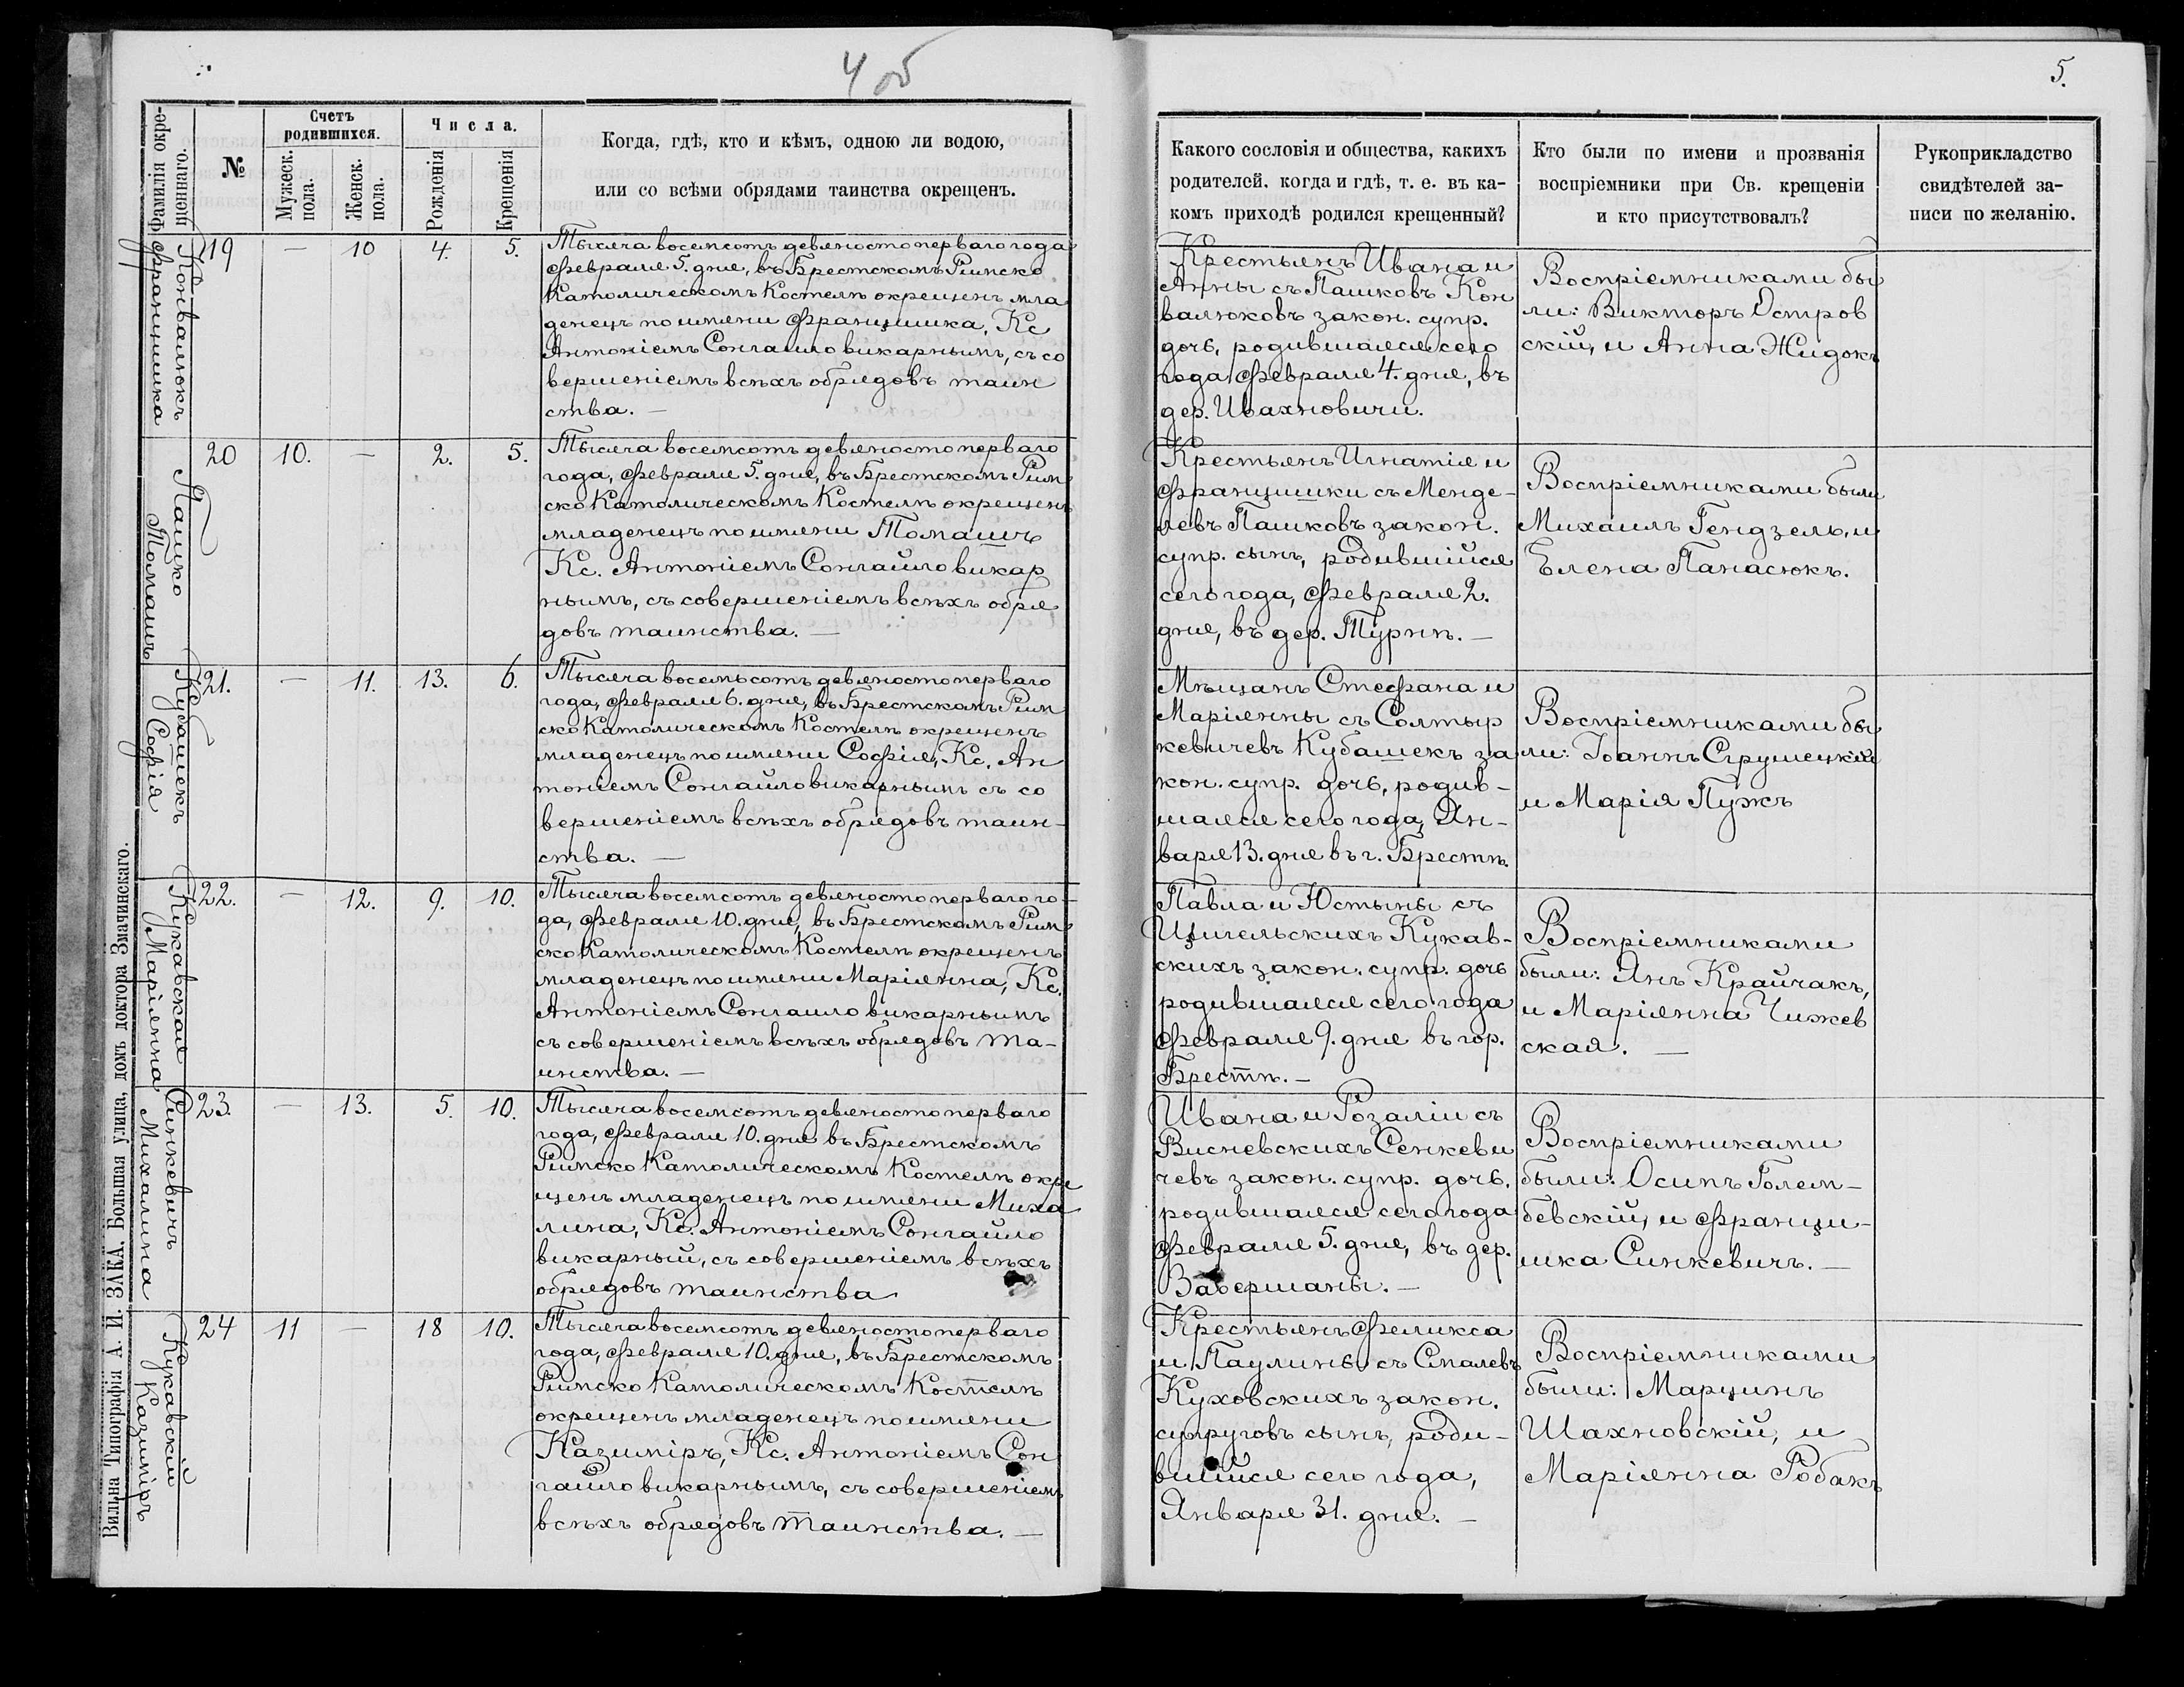 4 об
5.
Фамилія и имя окрещеннаго.
№
Счетъ родившихся.
Мужеск. пола.
Женск. пола.
Числа.
Рожденія
Крещенія
Когда, гдѣ, кто и кѣмъ, одною ли водою,
или со всѣми обрядами таинства окрещенъ.
Какого сословія и общества, какихъ
родителей, когда и гдѣ, т. е. въ ка-
комъ приходѣ родился крещенный?
Кто были по имени и прозванія
воспріемники при Св. крещеніи
и кто присутствовалъ?
Рукоприкладство
свидѣтелей за-
писи по желанію.
Конвалюкъ
Францишка
19 — 10 4. 5.
Тысяча восемсотъ девяностоперваго года
Февраля 5. дня, въ Брестскомъ Римско
Католическомъ Костелѣ окрещенъ мла
денецъ по имени Францишка, Кс
Антоніемъ Сонгайло викарнымъ, съ со
вершеніемъ всѣхъ обрядовъ таин
ства. —
Крестьянъ Ивана и
Анны съ Пашковъ Кон
валюковъ закон. супр.
дочь, родившаяся сего
года Февраля 4. дня, въ
дер. Ивахновичи.
Воспріемниками бы
ли: Викторъ Остров
скій, и Анна Жидокъ
Пашко
Томашъ
20 10. — 2. 5.
Тысяча восемсотъ девяностоперваго
года, Февраля 5. дня, въ Брестскомъ Рим
ско Католическомъ Костелѣ окрещенъ
младенецъ по имени Томашъ
Кс. Антоніемъ Сонгайло викар
нымъ, съ совершеніемъ всѣхъ обря
довъ таинства. —
Крестьянъ Игнатія и
Францишки съ Менде-
левъ Пашковъ закон.
супр. сынъ, родившійся
сего года, Февраля 2.
дня, въ дер. Турнѣ. —
Воспріемниками были
Михаилъ Гендзель, и
Елена Панасюкъ.
Кубашекъ
Софія
21. — 11. 13. 6.
Тысяча восемьсотъ девяностоперваго
года, Февраля 6. дня, въ Брестскомъ Рим
ско Католическомъ Костелѣ окрещенъ
младенецъ по имени Софія, Кс. Ан
тоніемъ Сонгайло викарнымъ съ со
вершеніемъ всѣхъ обрядовъ таин-
ства. —
Мѣщанъ Стефана и
Маріянны съ Солтыр
кевичевъ Кубашекъ за
кон. супр. дочь, родив-
шаяся сего года, Ян-
варя 13. дня въ г. Брестѣ.
Воспріемниками бы
ли: Іоаннъ Струшецкій
и Марія Пужъ
Кукавская
Маріянна
22. — 12. 9. 10.
Тысяча восемсотъ девяностоперваго го-
да, Февраля 10. дня, въ Брестскомъ Рим
ско Католическомъ Костелѣ окрещенъ
младенецъ по имени Маріянна, Кс.
Антоніемъ Сонгайло викарнымъ
съ совершеніемъ всѣхъ обрядовъ та-
инства. —
Павла и Юстыны съ
Цигельскихъ Кукав-
скихъ закон. супр. дочь
родившаяся сего года
Февраля 9. дня въ гор.
Брестѣ. —
Воспріемниками
были: Янъ Крайчакъ,
и Маріянна Чижев
ская. —
Синкевичъ
Михалина
23. — 13. 5. 10.
Тысяча восемсотъ девяностоперваго
года, Февраля 10. дня въ Брестскомъ
Римско Католическомъ Костелѣ окре
щенъ младенецъ по имени Миха
лина, Кс. Антоніемъ Сонгайло
викарный, съ совершеніемъ всѣхъ
обрядовъ таинства
Ивана и Розаліи съ
Висневскихъ Сенкеви
чевъ закон. супр. дочь.
родившаяся сего года
Февраля 5. дня, въ дер.
Завершаны. —
Воспріемниками
были: Осипъ Голем-
бевскій, и Францы-
шка Синкевичъ. —
Кукавскій
Казиміръ
24 11 — 18 10.
Тысяча восемсотъ девяностоперваго
года, Февраля 10. дня, въ Брестскомъ
Римско Католическомъ Костелѣ
окрещенъ младенецъ по имени
Казиміръ, Кс. Антоніемъ Сон
гайло викарнымъ, съ совершеніемъ
всѣхъ обрядовъ таинства. —
Крестьянъ Феликса
и Паулины съ Смалевъ
Куховскихъ закон.
супруговъ сынъ, роди-
вшійся сего года,
Января 31. дня. —
Воспріемниками
были: Марцинъ
Шахновскій, и
Маріянна Робакъ
Вильна Типографія А. И. ЗАКА, Большая улица, домъ доктора Змачинскаго.